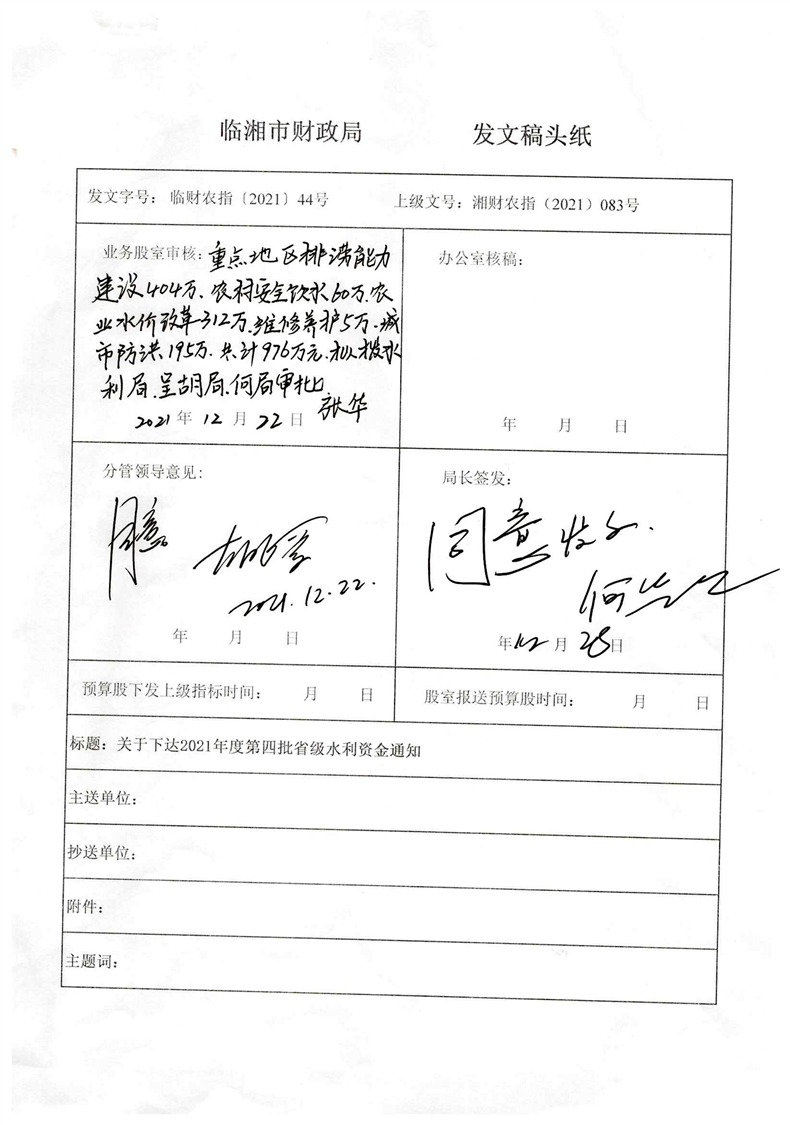 临湘市财政局 发文稿头纸
发文字号：临财农指〔2021〕44号 上级文号：湘财农指（2021）083号
业务股室审核：重点地区排涝能力
建设404万、农村安全饮水60万、农
业水价改革312万、维修养护5万、城
市防洪195万. 共计976万元. 拟拨水
利局. 呈胡局、何局审批
张华
2021年12月22日
办公室核稿：
年 月 日
分管领导意见：
同意
2021.12.22.
年 月 日
局长签发：
同意
年12月28日
预算股下发上级指标时间： 月 日
股室报送预算股时间： 月 日
标题：关于下达2021年度第四批省级水利资金通知
主送单位：
抄送单位：
附件：
主题词：